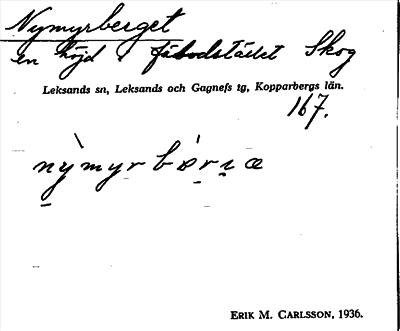 Nymyrberget
en höjd i fäbodstället Skog
Leksands sn, Leksands och Gagnefs tg, Kopparbergs län.
167.
nỳmyrbɵ̀rɿæ
ERIK M. CARLSSON, 1936.